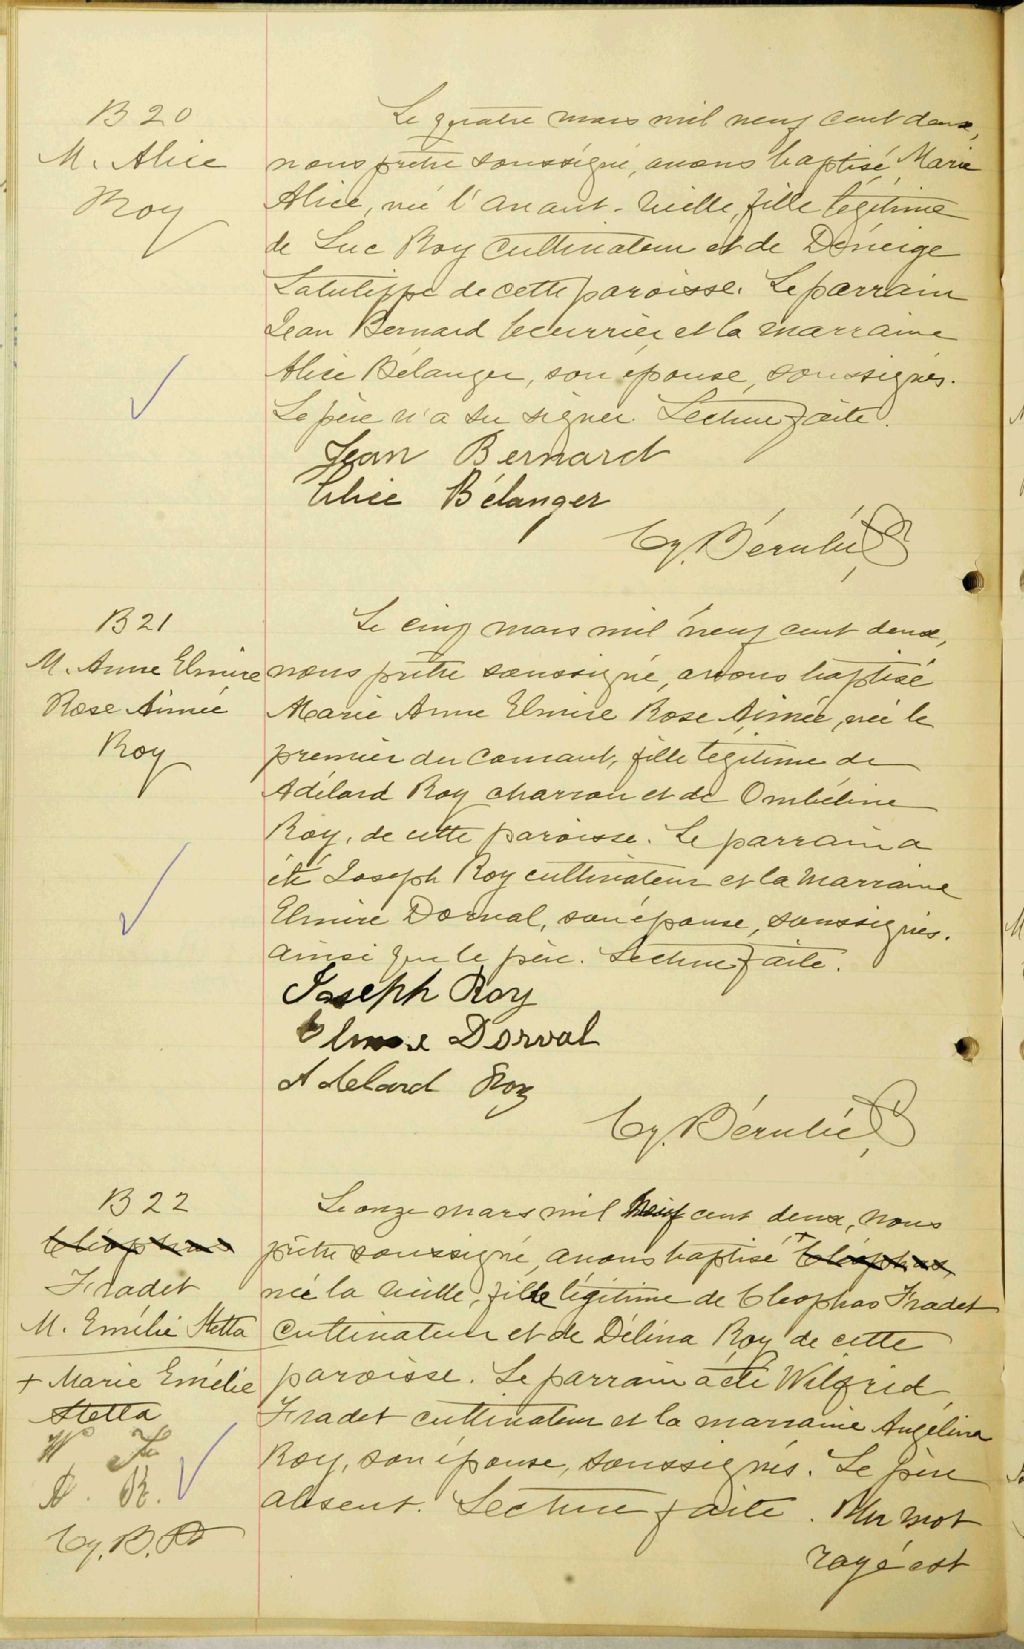 B 20
M. Alice
Roy
Le quatre mars mil neuf cent deux,
nous prêtre soussigné, avons baptisé Marie
Alice, née l'avant-veille, fille légitime
de Luc Roy cultivateur et de Déneige
Latulippe de cette paroisse. Le parrain
Jean Bernard et la marraine
Alice Bélanger, son épouse, soussignés.
Le père n'a su signer. Lecture faite.
Jean Bernard
Alice Bélanger
Cy. Bérubé, P
B 21
M. Anne Elmire
Rose Aimée
Roy
Le cinq mars mil neuf cent deux,
nous prêtre soussigné, avons baptisé
Marie Anne Elmire Rose Aimée, née le
premier du courant, fille légitime de
Adélard Roy charron et de Ombéline
Roy, de cette paroisse. Le parrain a
été Joseph Roy cultivateur et la marraine
Elmire Dorval, son épouse, soussignés.
ainsi que le père. Lecture faite.
Joseph Roy
Elmire Dorval
Adelard Roy
Cy. Bérubé, P
B 22
Cléophas
Fradet
M. Emélie Stella
+ Marie Emélie
Stella
W. F.
A. R.
Cy. B. P
Le onze mars mil neuf cent deux, nous
prêtre soussigné, avons baptisé + Cléophas,
née la veille, fille légitime de Cléophas Fradet
cultivateur et de Délina Roy de cette
paroisse. Le parrain a été Wilfrid
Fradet cultivateur et la marraine Angélina
Roy, son épouse, soussignés. Le père
absent. Lecture faite. Un mot
rayé est